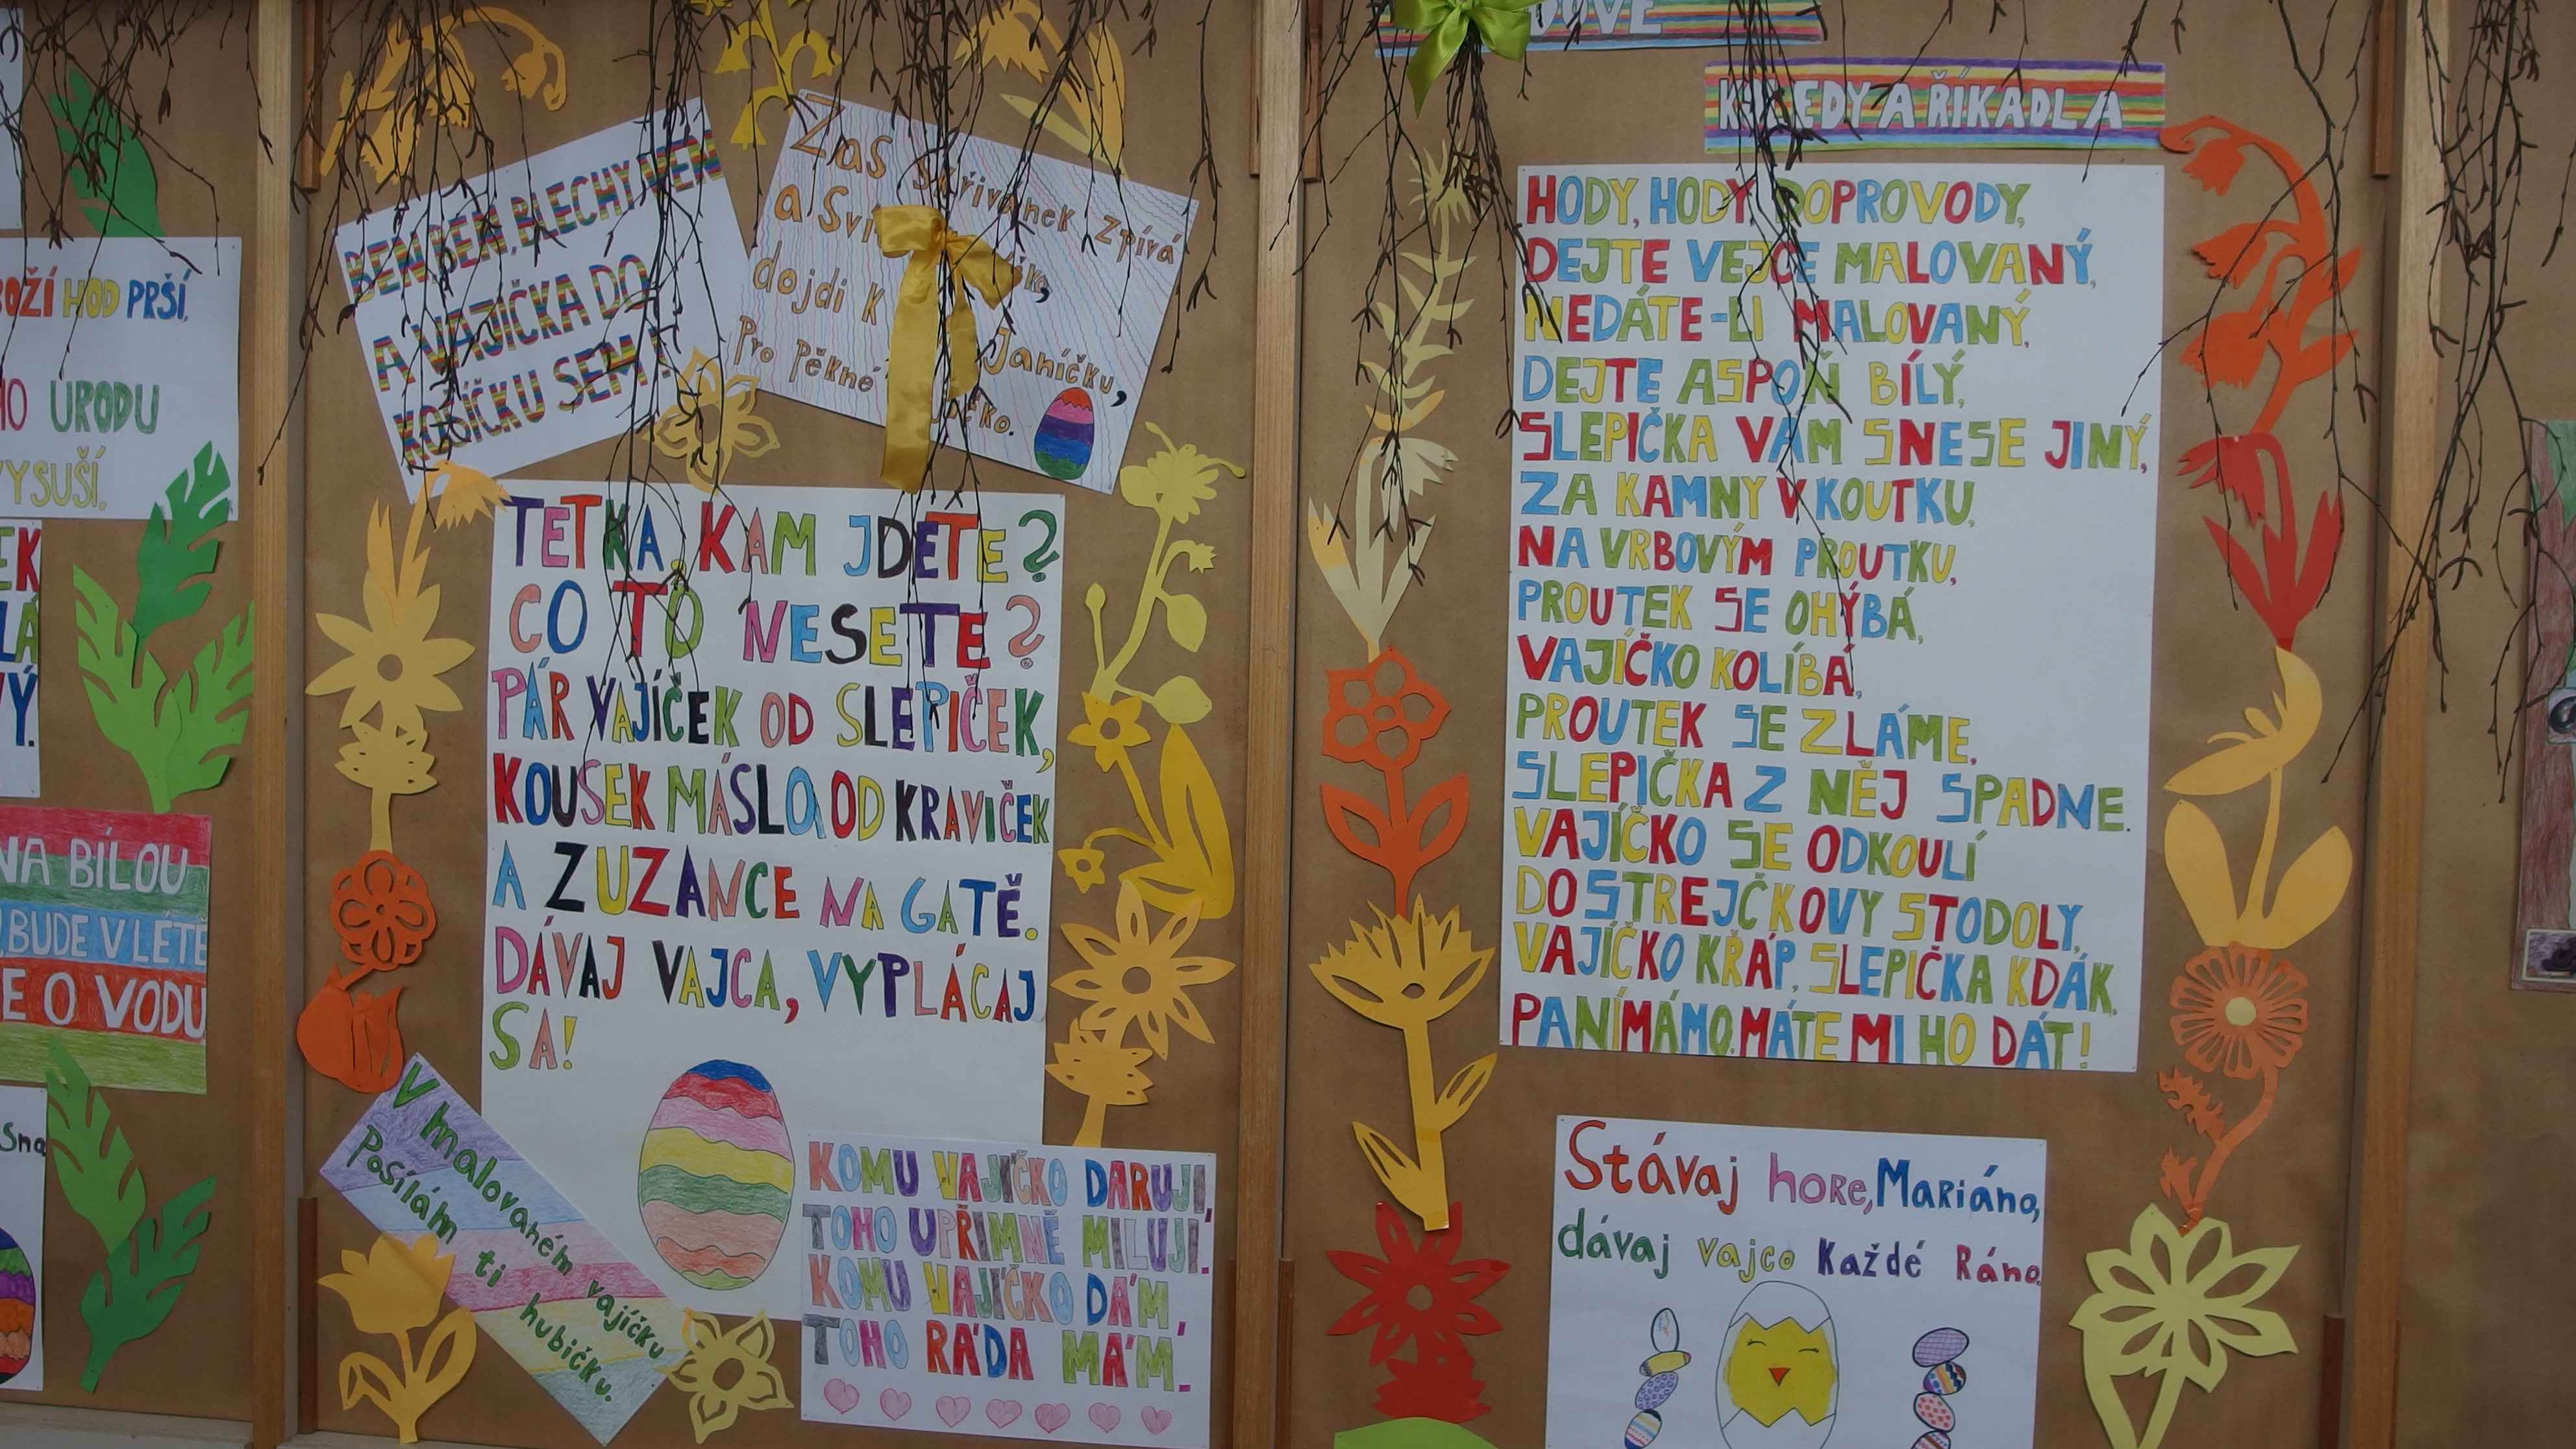 BOŽÍ HOD PRŠÍ,
ÚRODU
VYSUŠÍ.
NA BÍLOU
BUDE V LÉTĚ
E O VODU
BEŇ, BEŇ, BLECHY VEN
A VAJÍČKA DO
KOŠÍČKU SEM!
Zas skřivánek zpívá
a
dojdi k Janíčku,
Pro pěkné
TETKA, KAM JDETE?
CO TO NESETE?
PÁR VAJÍČEK OD SLEPIČEK,
KOUSEK MÁSLA OD KRAVIČEK
A ZUZANCE NA GATĚ.
DÁVAJ VAJCA, VYPLÁCAJ
SA!
V malovaném vajíčku
Posílám ti hubičku.
KOMU VAJÍČKO DARUJI,
TOHO UPŘÍMNĚ MILUJI.
KOMU VAJÍČKO DÁM,
TOHO RÁDA MÁM.
KOLEDY A ŘÍKADLA
HODY, HODY DOPROVODY,
DEJTE VEJCE MALOVANÝ,
NEDÁTE-LI MALOVANÝ,
DEJTE ASPOŇ BÍLÝ,
SLEPIČKA VÁM SNESE JINÝ,
ZA KAMNY V KOUTKU,
NA VRBOVÝM PROUTKU,
PROUTEK SE OHÝBÁ,
VAJÍČKO KOLÍBÁ,
PROUTEK SE ZLÁME,
SLEPIČKA Z NĚJ SPADNE.
VAJÍČKO SE ODKOULÍ
DO STREJČKOVY STODOLY,
VAJÍČKO KŘÁP, SLEPIČKA KDÁK,
PANÍMÁMO, MÁTE MI HO DÁT!
Stávaj hore, Mariáno,
dávaj vajco každé Ráno.